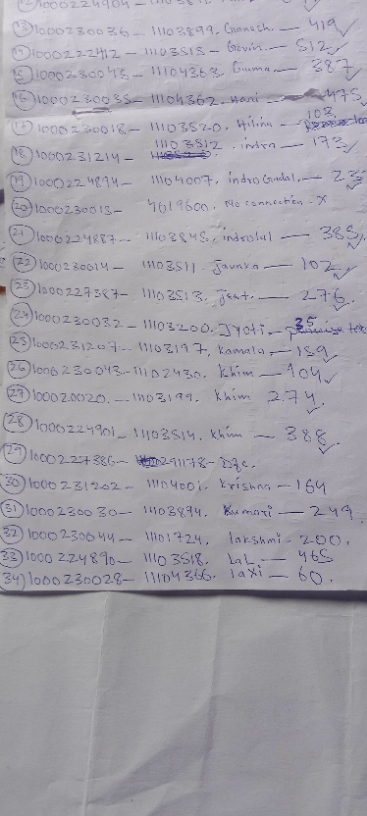 12)1000224904 -
13)1000230036 - 11103899. Ganesh. - 419
14)1000222412 - 11103515 - Govin. - 512
15)1000230045 - 11104363. Guma - 387
16)1000230035 - 11104362. Hani - 475
17)1000230018 - 11103520. 103
18)1000231214 - 11103512. indra - 173
19)1000224894 - 11104007. - 23
20)1000230013 - 4019600. No connection - X
21)1000224887 - 11103845. indrolal - 385
22)1000230014 - 11103511. Jaunka - 102
23)1000227387 - 11103513. Jeet. - 276
24)1000230032 - 11103200. Jyoti - 35
25)1000231207 - 11103197. Kamala - 159
26)1000230043 - 11102430. Khim - 104
27)100020020. - 11103199. Khim 274
28)1000224901 - 11103514. Khim - 388
29)1000227386 - 291178 -
30)1000231202 - 1110400i. Krishna - 164
31)1000230030 - 11103894. Kumari - 249
32)1000230044 - 11101724. lakshmi - 200.
33)1000224890 - 11103518. LaL - 465
34)1000230028 - 11104366. laxi - 60.